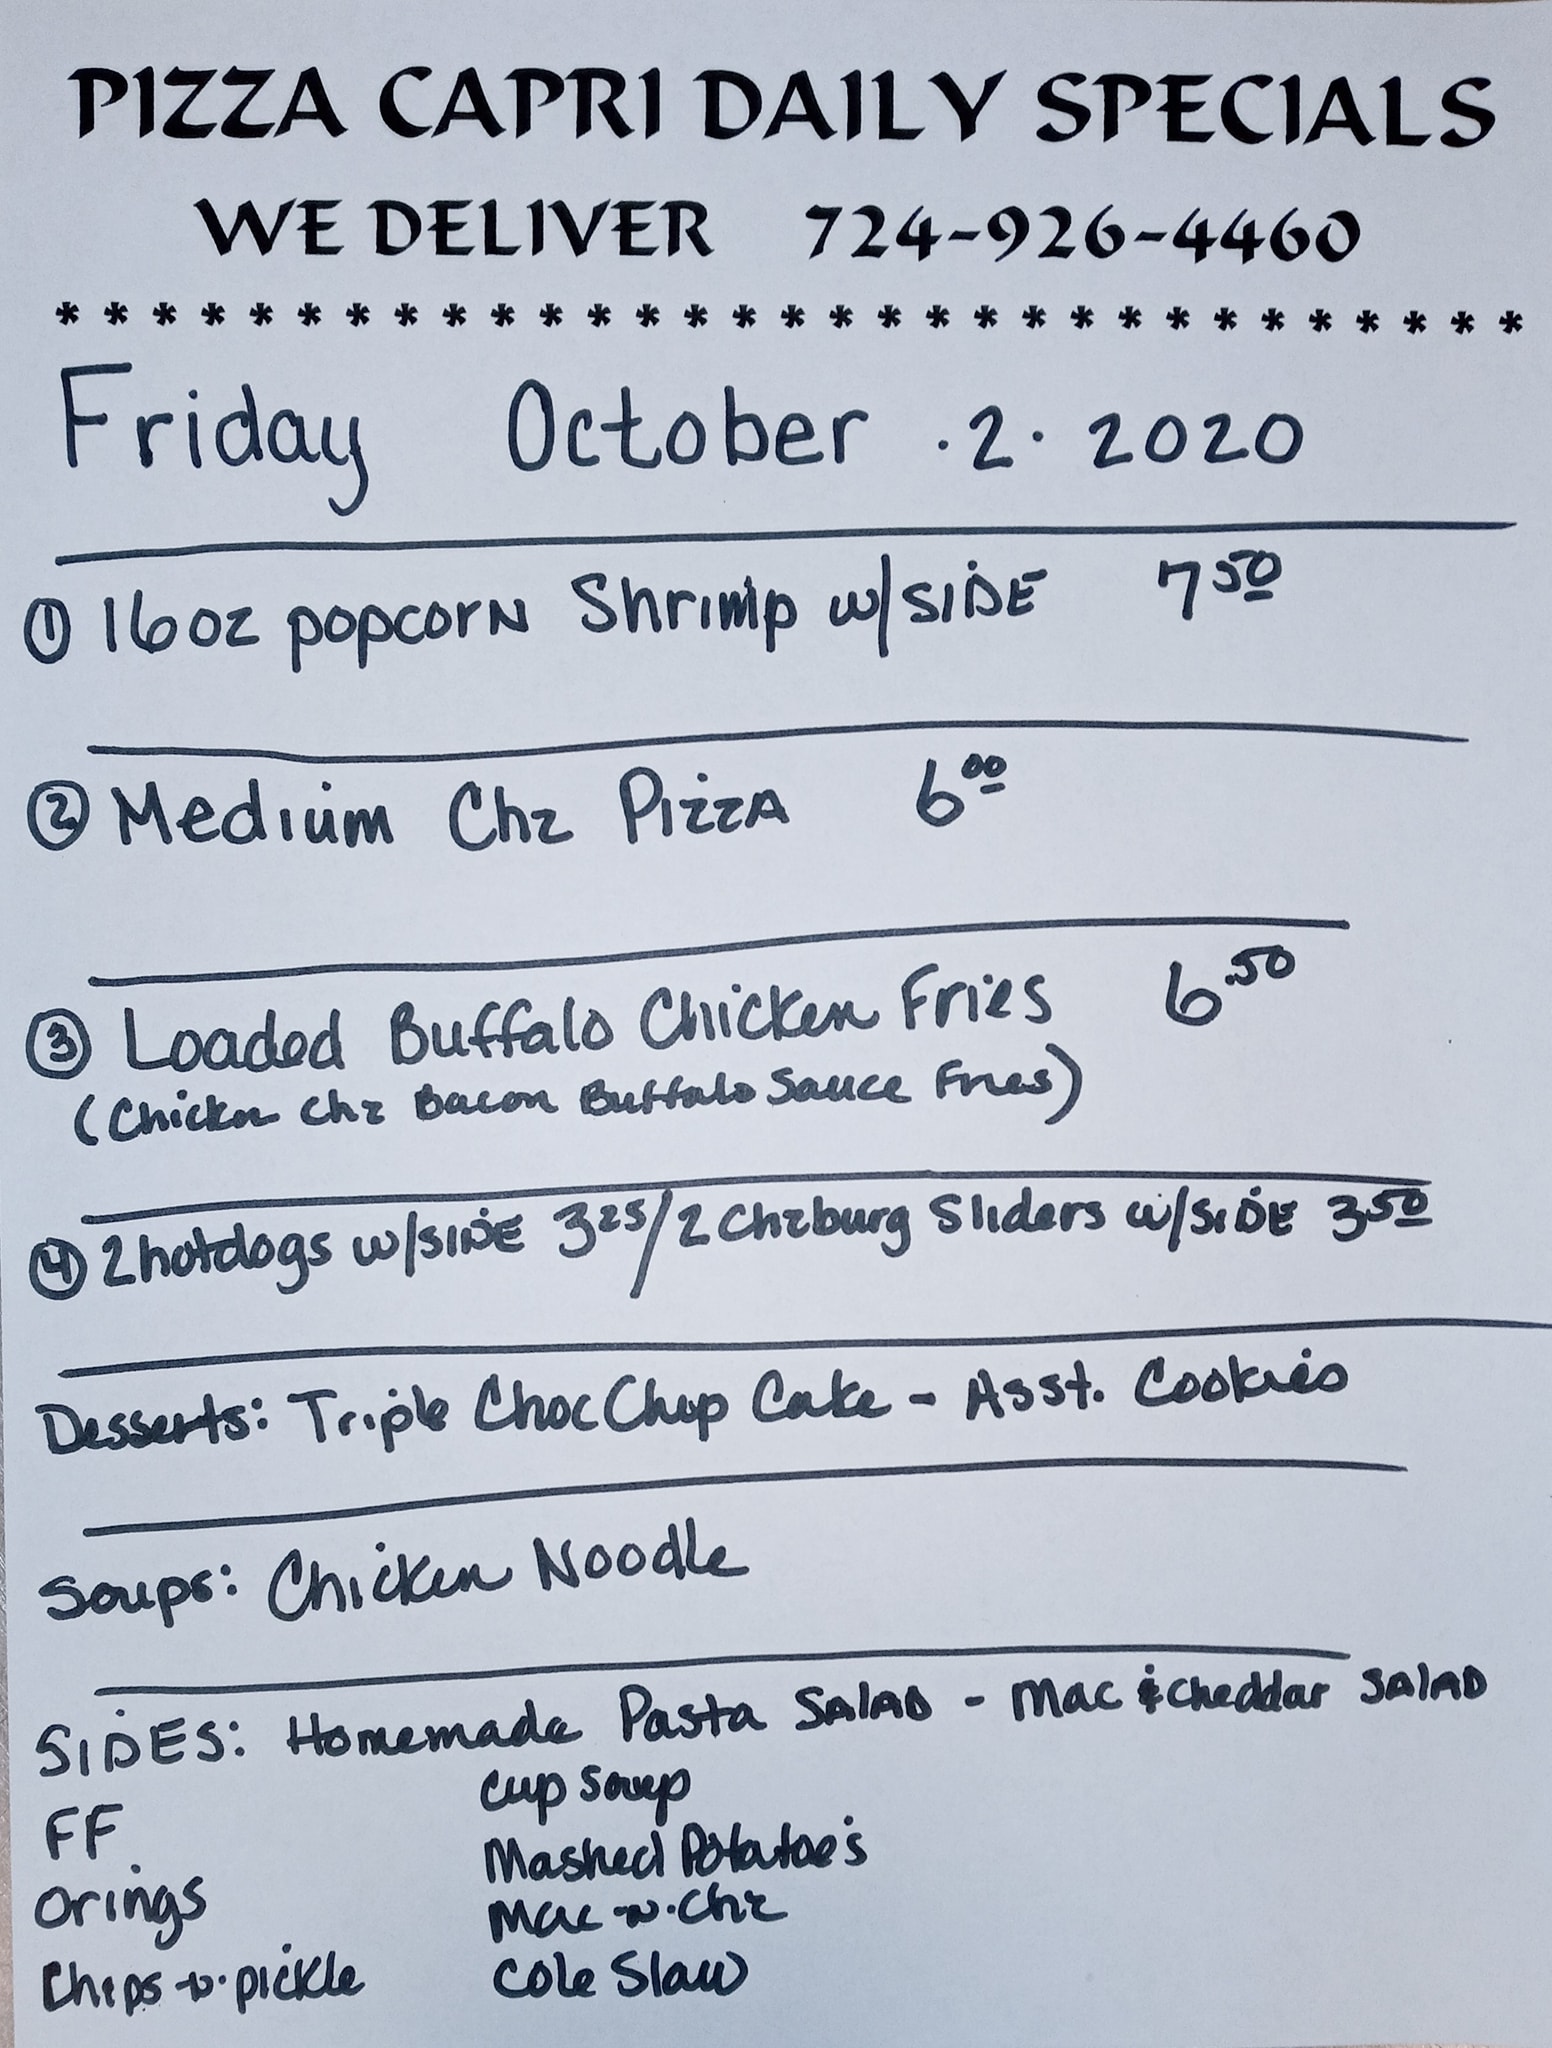 PIZZA CAPRI DAILY SPECIALS
WE DELIVER 724-926-4460
* * * * * * * * * * * * * * * * * * * * * * * * * * * * * * *
Friday October .2. 2020
① 16oz popcorn Shrimp w/SIDE 7 50
② Medium Chz Pizza 6 00
③ Loaded Buffalo Chicken Fries 6.50
(Chicken Chz Bacon Buffalo Sauce Fries)
④ 2 hotdogs w/SIDE 3 25/2 Chzburg Sliders w/SIDE 3 50
Desserts: Triple Choc Chip Cake - Asst. Cookies
Soups: Chicken Noodle
SIDES: Homemade Pasta SALAD - Mac & Cheddar SALAD
FF cup soup
Orings Mashed Potatoe's
Chips-n-pickle Mac-n-Chz
Cole Slaw